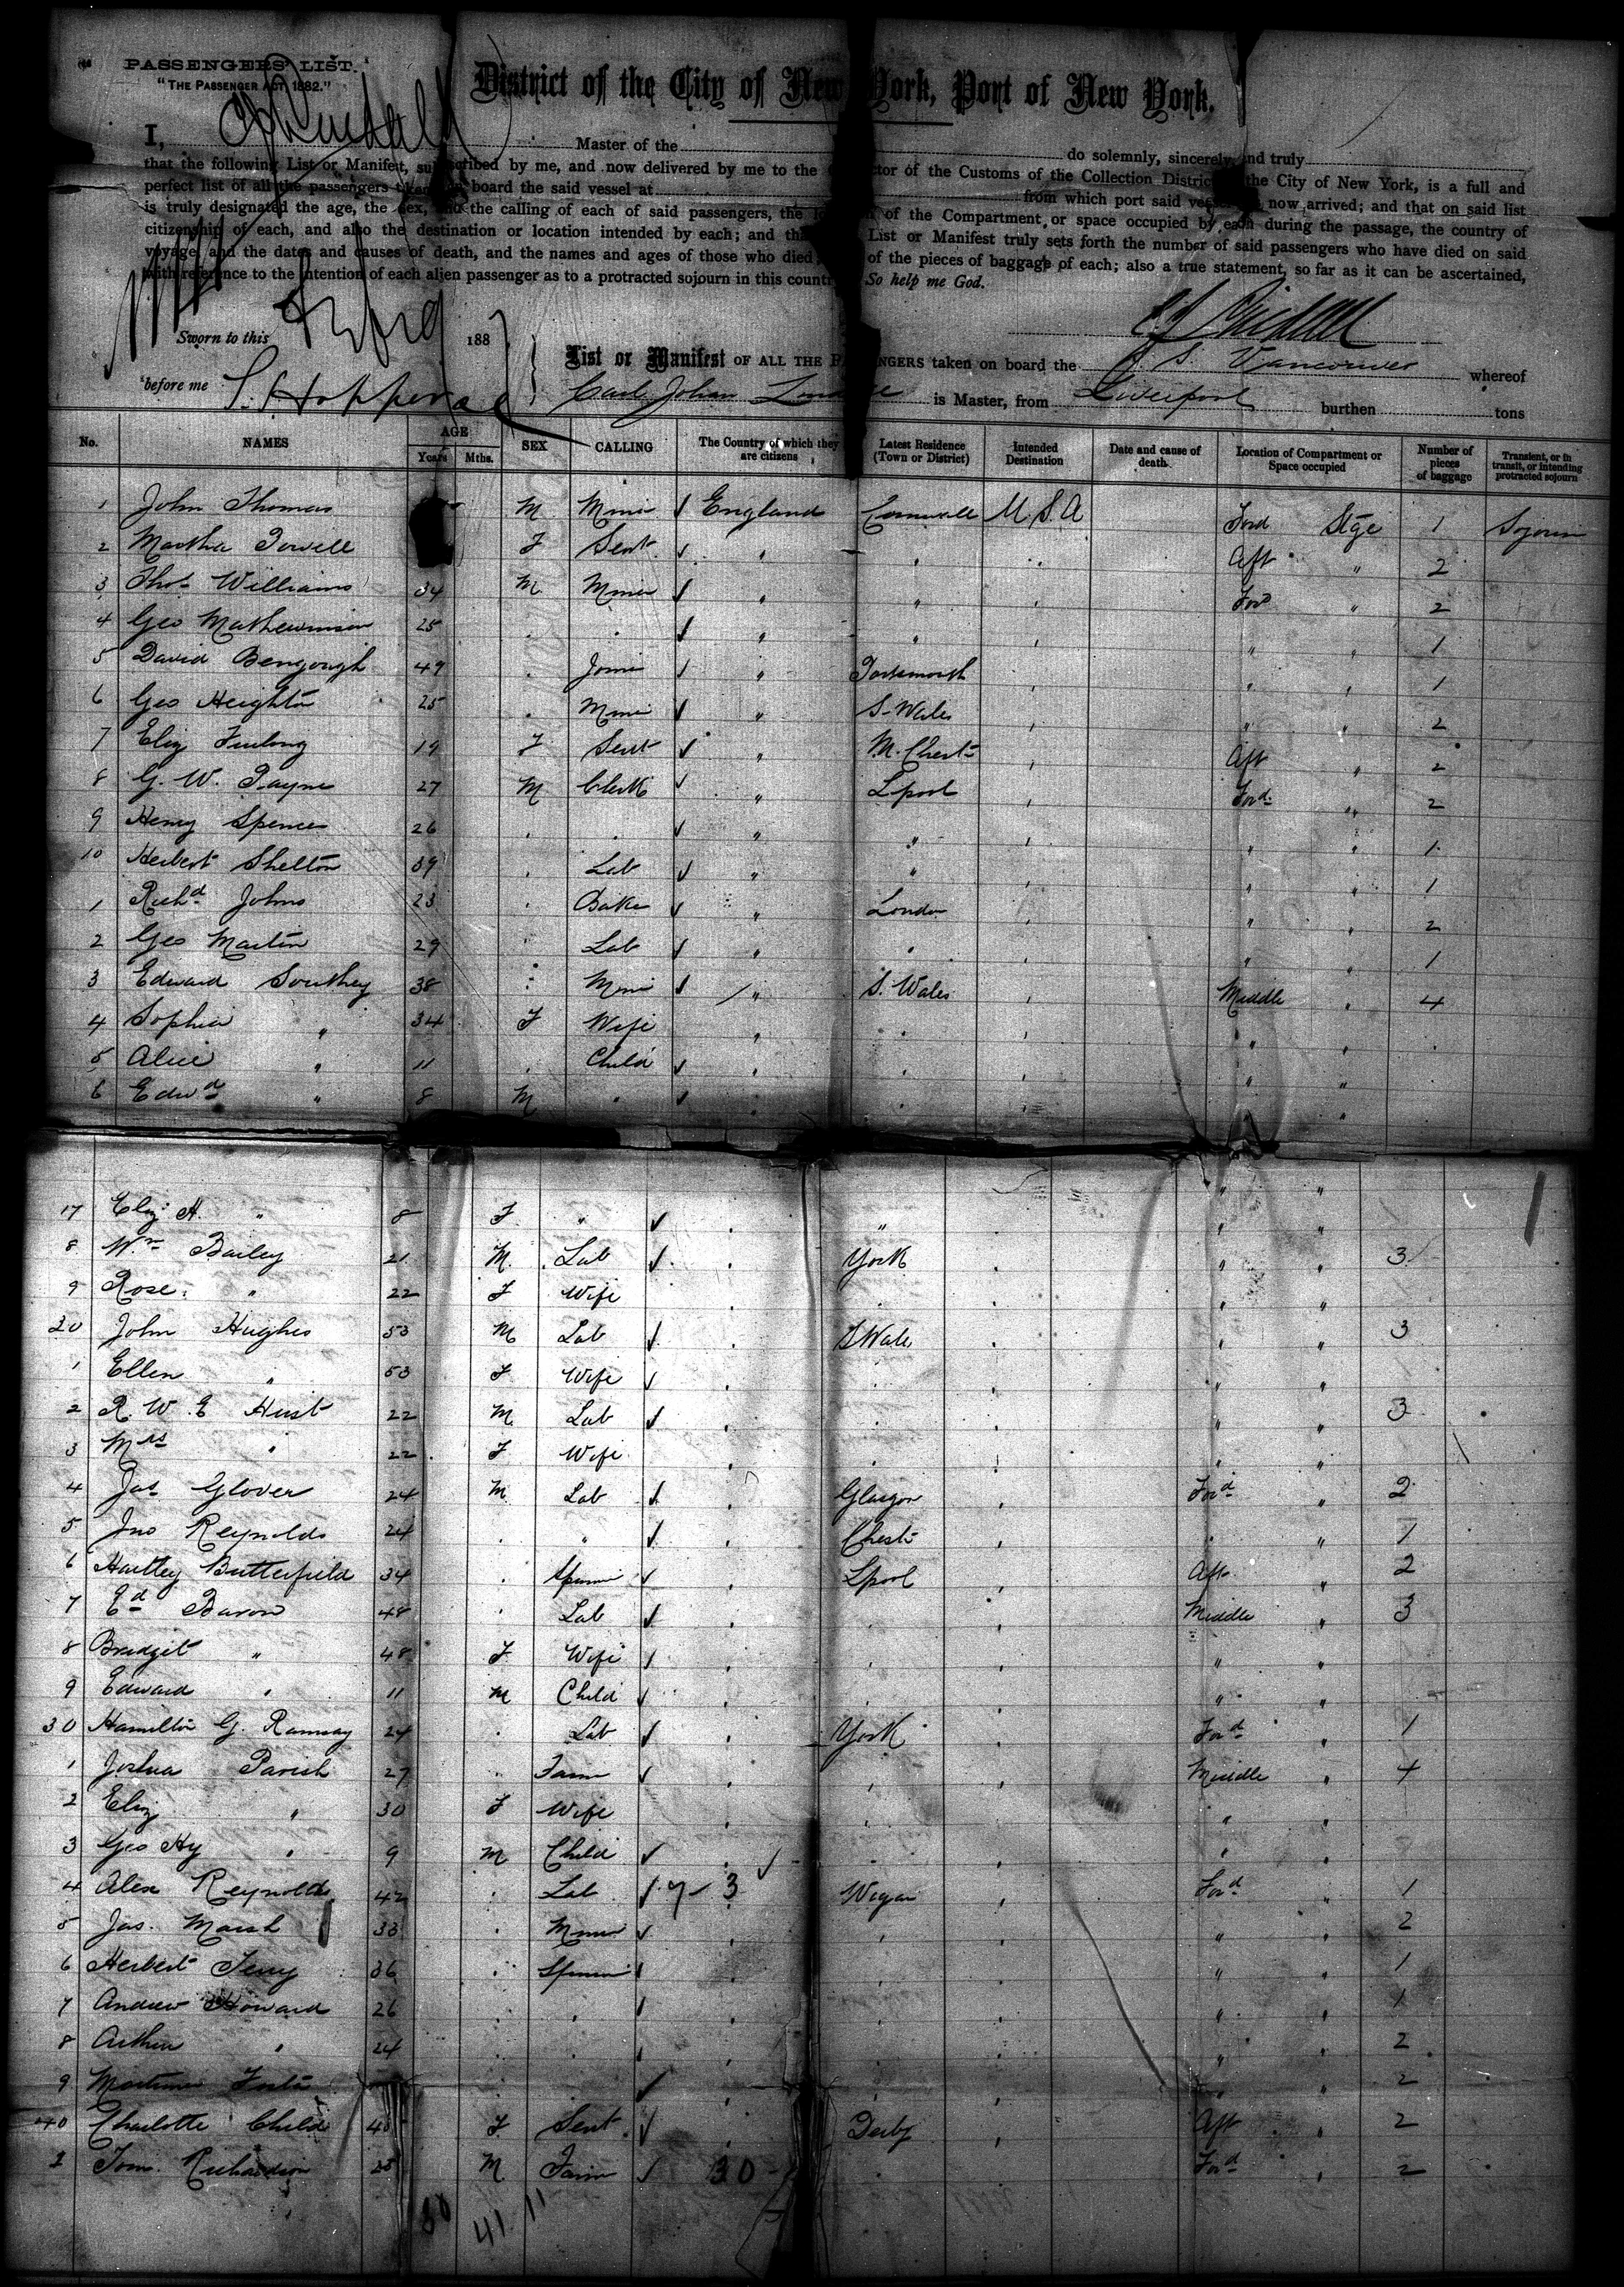 PASSENGERS' LIST.
"THE PASSENGER ACT, 1882."
District of the City of New York, Port of New York.
I, Master of the do solemnly, sincerely and truly
that the following List or Manifest, subscribed by me, and now delivered by me to the ctor of the Customs of the Collection District the City of New York, is a full and
perfect list of all the passengers taken on board the said vessel at from which port said vessel now arrived; and that on said list
is truly designated the age, the sex, and the calling of each of said passengers, the lo n of the Compartment or space occupied by each during the passage, the country of
citizenship of each, and also the destination or location intended by each; and th List or Manifest truly sets forth the number of said passengers who have died on said
voyage, and the dates and causes of death, and the names and ages of those who died of the pieces of baggage of each; also a true statement, so far as it can be ascertained,
with reference to the intention of each alien passenger as to a protracted sojourn in this countr So help me God.
Sworn to this 188
before me
List or Manifest OF ALL THE P NGERS taken on board the S. Vancouver whereof
Carl Johan is Master, from Liverpool burthen tons
No. NAMES AGE Years Mths. SEX CALLING The Country of which they are citizens Latest Residence (Town or District) Intended Destination Date and cause of death. Location of Compartment or Space occupied Number of pieces of baggage Transient, or in transit, or intending protracted sojourn
1 John Thomas M Miner England Cornwall U S. A Ford Stge 1 Sojourn
2 Martha Powell F Servt " " " Aft " 2
3 Thos Williams 34 M Miner " " " Ford " 2
4 Geo 25 " " " " " " " 1
5 David Bengough 49 " Joiner " Portsmouth " " " 1
6 Geo Heighton 25 " Miner " S. Wales " " " 2
7 Eliz Furlong 19 F Servt " M. Chestr " Aft " 2
8 G. W. Payne 27 M Clerk " Lpool " Ford " 2
9 Henry Spence 26 " " " " " " " 1
10 Herbert Shelton 39 " Lab " " " " " 1
1 Richd Johns 23 " Baker " London " " " 2
2 Geo Martin 29 " Lab " " " " " 1
3 Edward Southey 38 " Miner " S. Wales " Middle " 4
4 Sophia " 34 F Wife " " " " "
5 Alice " 11 " Child " " " " "
6 Edwd " 8 M " " " " " "
17 Eliz. A. " 8 F " " " " " "
8 Wm Bailey 21 M Lab " York " " " 3
9 Rose " 22 F Wife " " " " "
20 John Hughes 53 M Lab " S Wales " " " 3
1 Ellen " 53 F Wife " " " " "
2 R. W. E Hirst 22 M Lab " " " " " 3
3 Mrs " 22 F Wife " " " " "
4 Jas Glover 24 M Lab " Glasgow " Ford " 2
5 Jno Reynolds 24 " " " Chestr " " " 1
6 Hartley Butterfield 34 " Spinner " Lpool " Aft " 2
7 Ed Baron 48 " Lab " " " Middle " 3
8 Bridget " 48 F Wife " " " " "
9 Edward " 11 M Child " " " " "
30 Hamilton G. Ramsay 24 " Lab " York " Ford " 1
1 Joshua Parish 27 " Farm " " " Middle " 4
2 Eliz " 30 F Wife " " " " "
3 Geo Hy " 9 M Child " " " " "
4 Alex Reynolds 42 " Lab 3 Wigan " Ford " 1
5 Jas. Marsh 33 " Miner " " " " " 2
6 Herbert Terry 36 " Spinner " " " " " 1
7 Andrew Howard 26 " " " " " " " 1
8 Arthur " 24 " " " " " " " 2
9 " " " " 2
40 Charlotte Child 40 F Servt " Derby " Aft " 2
1 Tom. Richardson 25 M Farm 30 " " Ford " 2
41 11